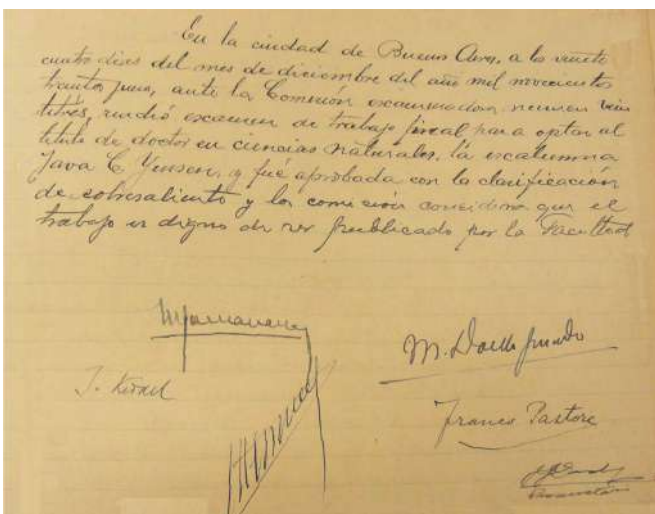 En la ciudad de Buenos Aires, a los veinte
cuatro dias del mes de diciembre del año mil novecientos
treinta y uno, ante la Comisión examinadora número vein
titrés, rindió examen de trabajo final para optar al
título de doctor en ciencias naturales, la exalumna
Java C. Yussen, y fué aprobada con la clasificación
de sobresaliente y la comisión considera que el
trabajo es digno de ser publicado por la Facultad
M. Doello Jurado
Franco Pastore